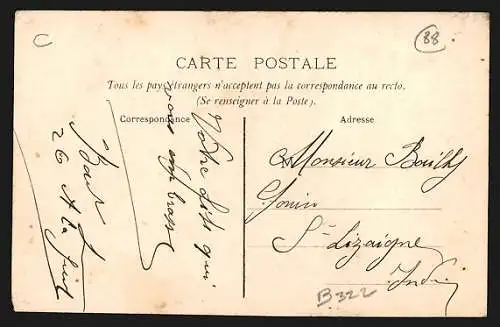 C
88
CARTE POSTALE
Tous les pays étrangers n'acceptent pas la correspondance au recto.
(Se renseigner à la Poste)
Correspondance
Adresse
Votre fils qui
vous embrasse
26
Monsieur
St Lizaigne
Indre
B 322